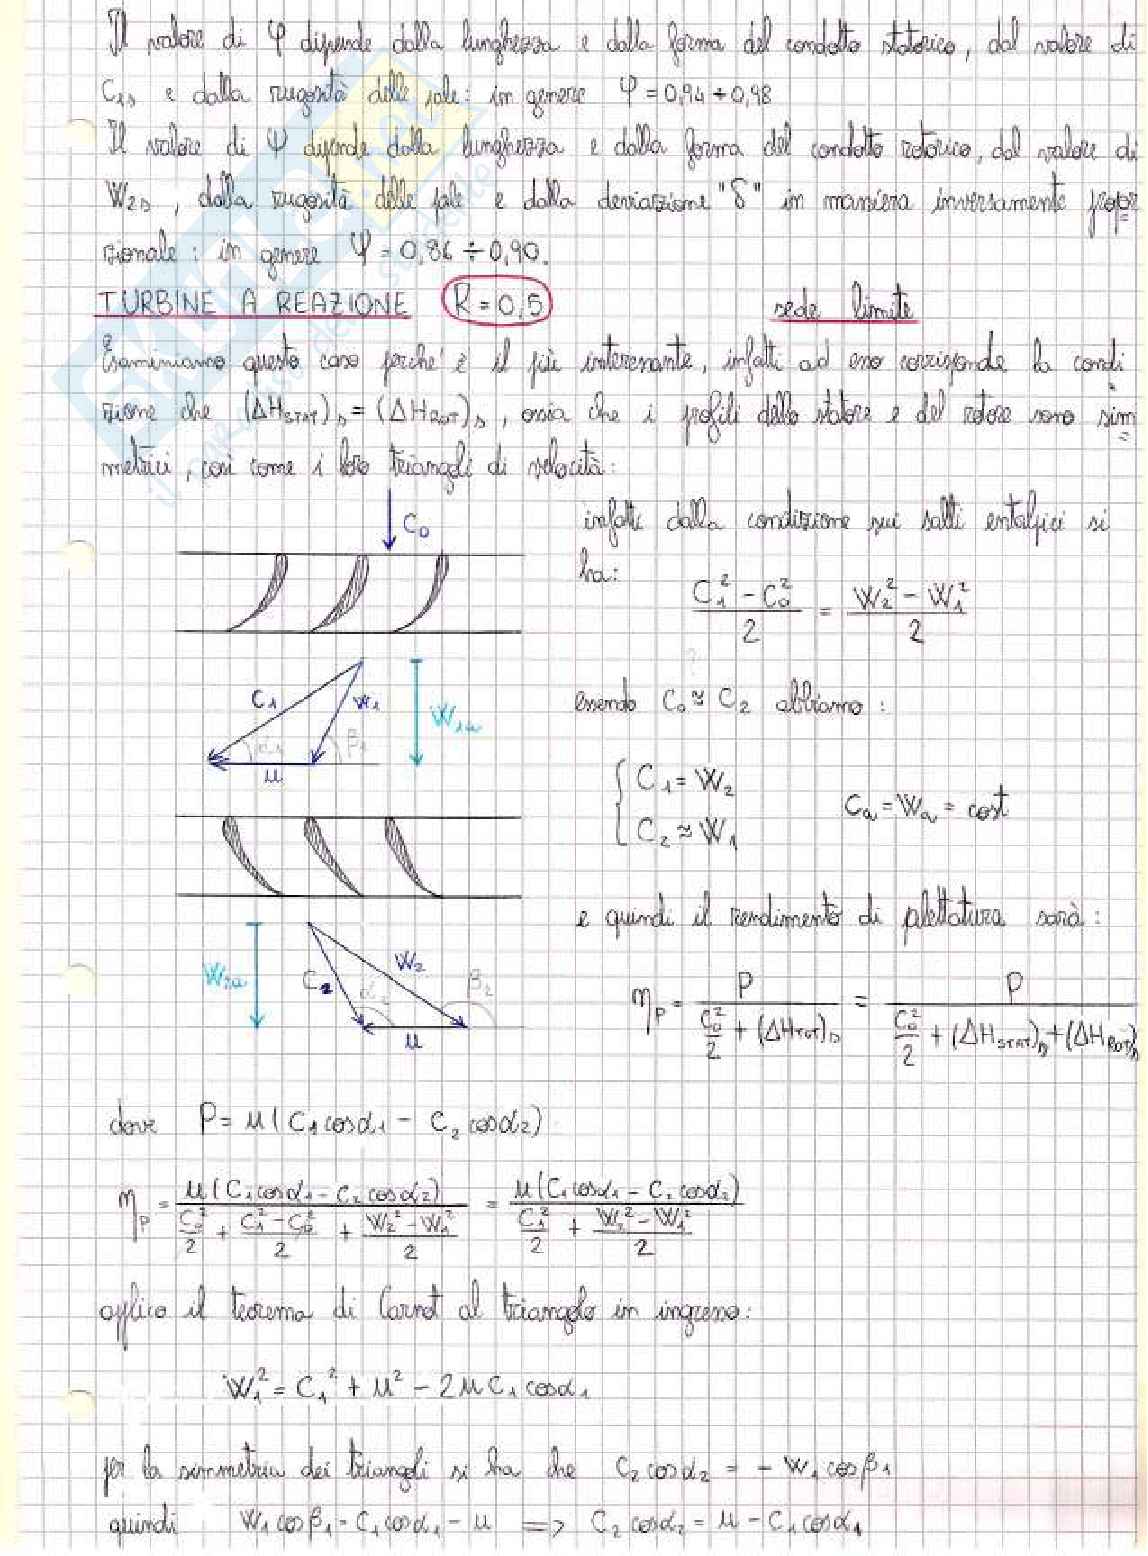 Il valore di φ dipende dalla lunghezza e dalla forma del condotto statorico, dal valore di
C1s e dalla rugosità delle pale: in genere φ = 0,94 ÷ 0,98
Il valore di ψ dipende dalla lunghezza e dalla forma del condotto rotorico, dal valore di
W2s, dalla rugosità delle pale e dalla deviazione "δ" in maniera inversamente propor
zionale: in genere ψ = 0,86 ÷ 0,90.
TURBINE A REAZIONE R = 0,5 sede limite
Esaminiamo questo caso perché è il più interessante, infatti ad esso corrisponde la condi
zione che (ΔHSTAT)s = (ΔHROT)s, ossia che i profili dello statore e del rotore sono sim
metrici, così come i loro triangoli di velocità:
C0
infatti dalla condizione sui salti entalpici si
ha:
(C1² - C0²)/2 = (W2² - W1²)/2
C1 W1 α1 β1 u W1a
?
essendo C0 ≈ C2 abbiamo:
{ C1 = W2
C2 ≈ W1
Ca = Wa = cost
e quindi il rendimento di palettatura sarà:
W2a C2 W2 α2 β2 u
ηp = P / (C0²/2 + (ΔHTOT)s) = P / (C0²/2 + (ΔHSTAT)s + (ΔHROT)s)
dove P = u (C1 cosα1 - C2 cosα2)
ηp = u (C1 cosα1 - C2 cosα2) / (C0²/2 + (C1² - C0²)/2 + (W2² - W1²)/2) = u (C1 cosα1 - C2 cosα2) / (C1²/2 + (W2² - W1²)/2)
applico il teorema di Carnot al triangolo in ingresso:
W1² = C1² + u² - 2u C1 cosα1
per la simmetria dei triangoli si ha che C2 cosα2 = - W1 cosβ1
quindi W1 cosβ1 = C1 cosα1 - u => C2 cosα2 = u - C1 cosα1